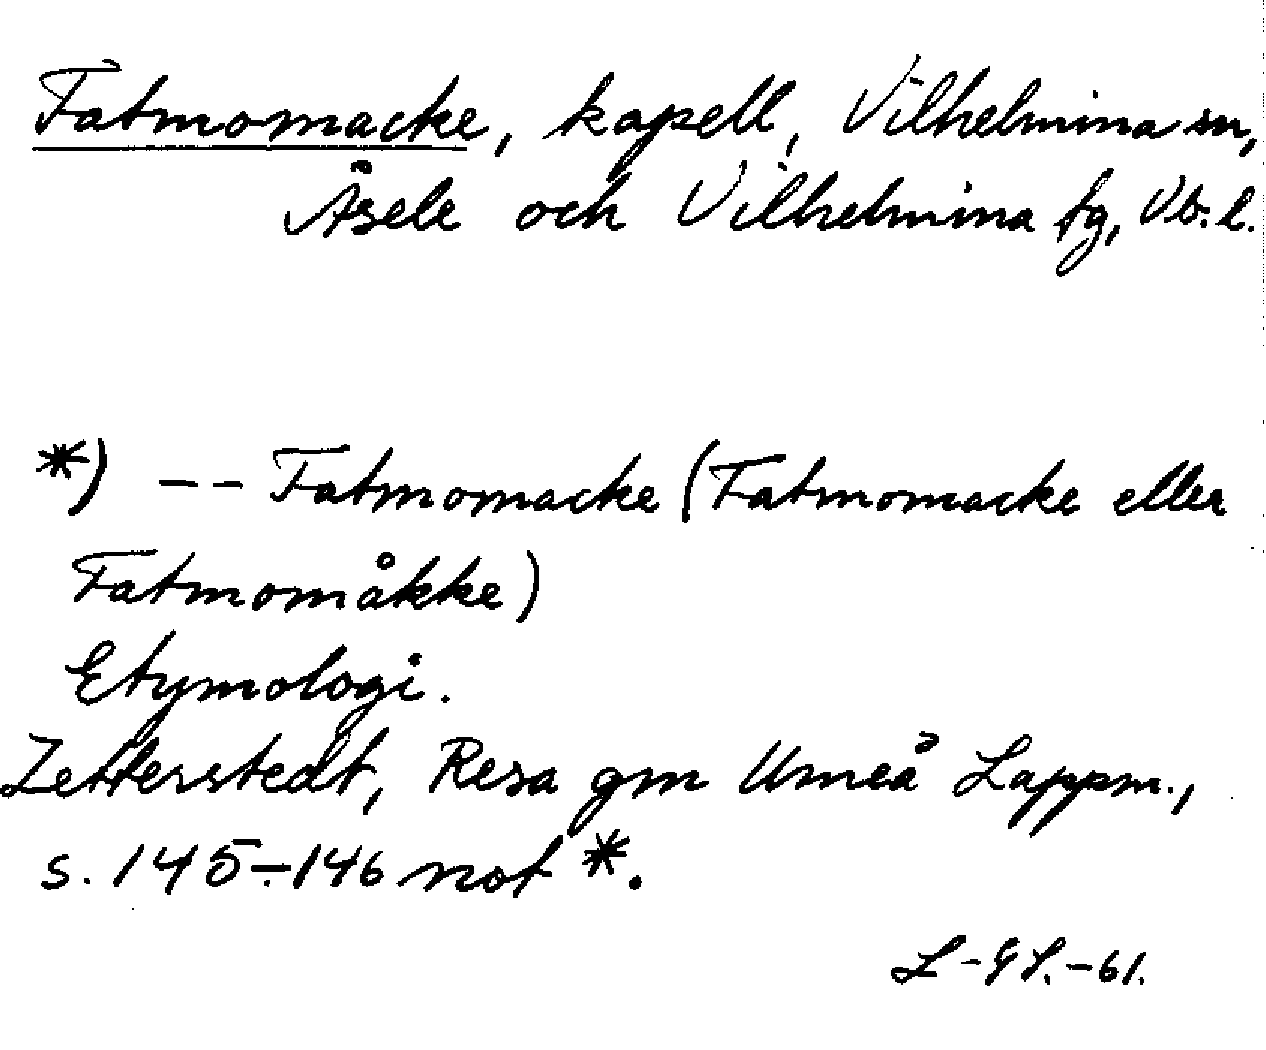 Fatmomacke, kapell, Vilhelmina sn,
Åsele och Vilhelmina fg, Vb. l.
*) -- Fatmomacke (Fatmomacke eller
Fatmomåkke)
Etymologi.
Zetterstedt, Resa gm Umeå Lappm.,
s. 145-146 not *.
L-GS.-61.